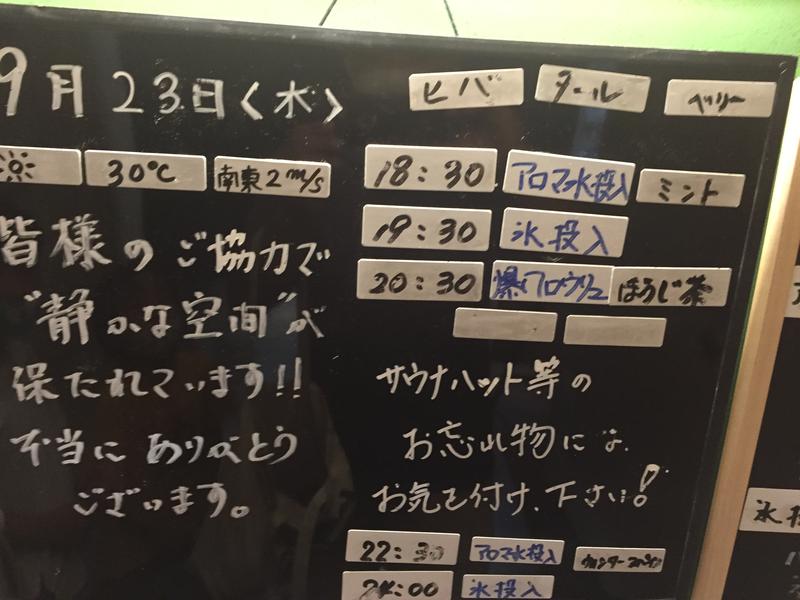 9月23日〈水〉
ヒバ タール ベリー
30℃ 南東2m/s
皆様のご協力で
"静かな空間"が
保たれています!!
本当にありがとう
ございます。
18:30 アロマ水投入 ミント
19:30 氷投入
20:30 爆アロウリュ ほうじ茶
サウナハット等の
お忘れ物には
お気を付け下さい!
22:30 アロマ水投入
24:00 氷投入